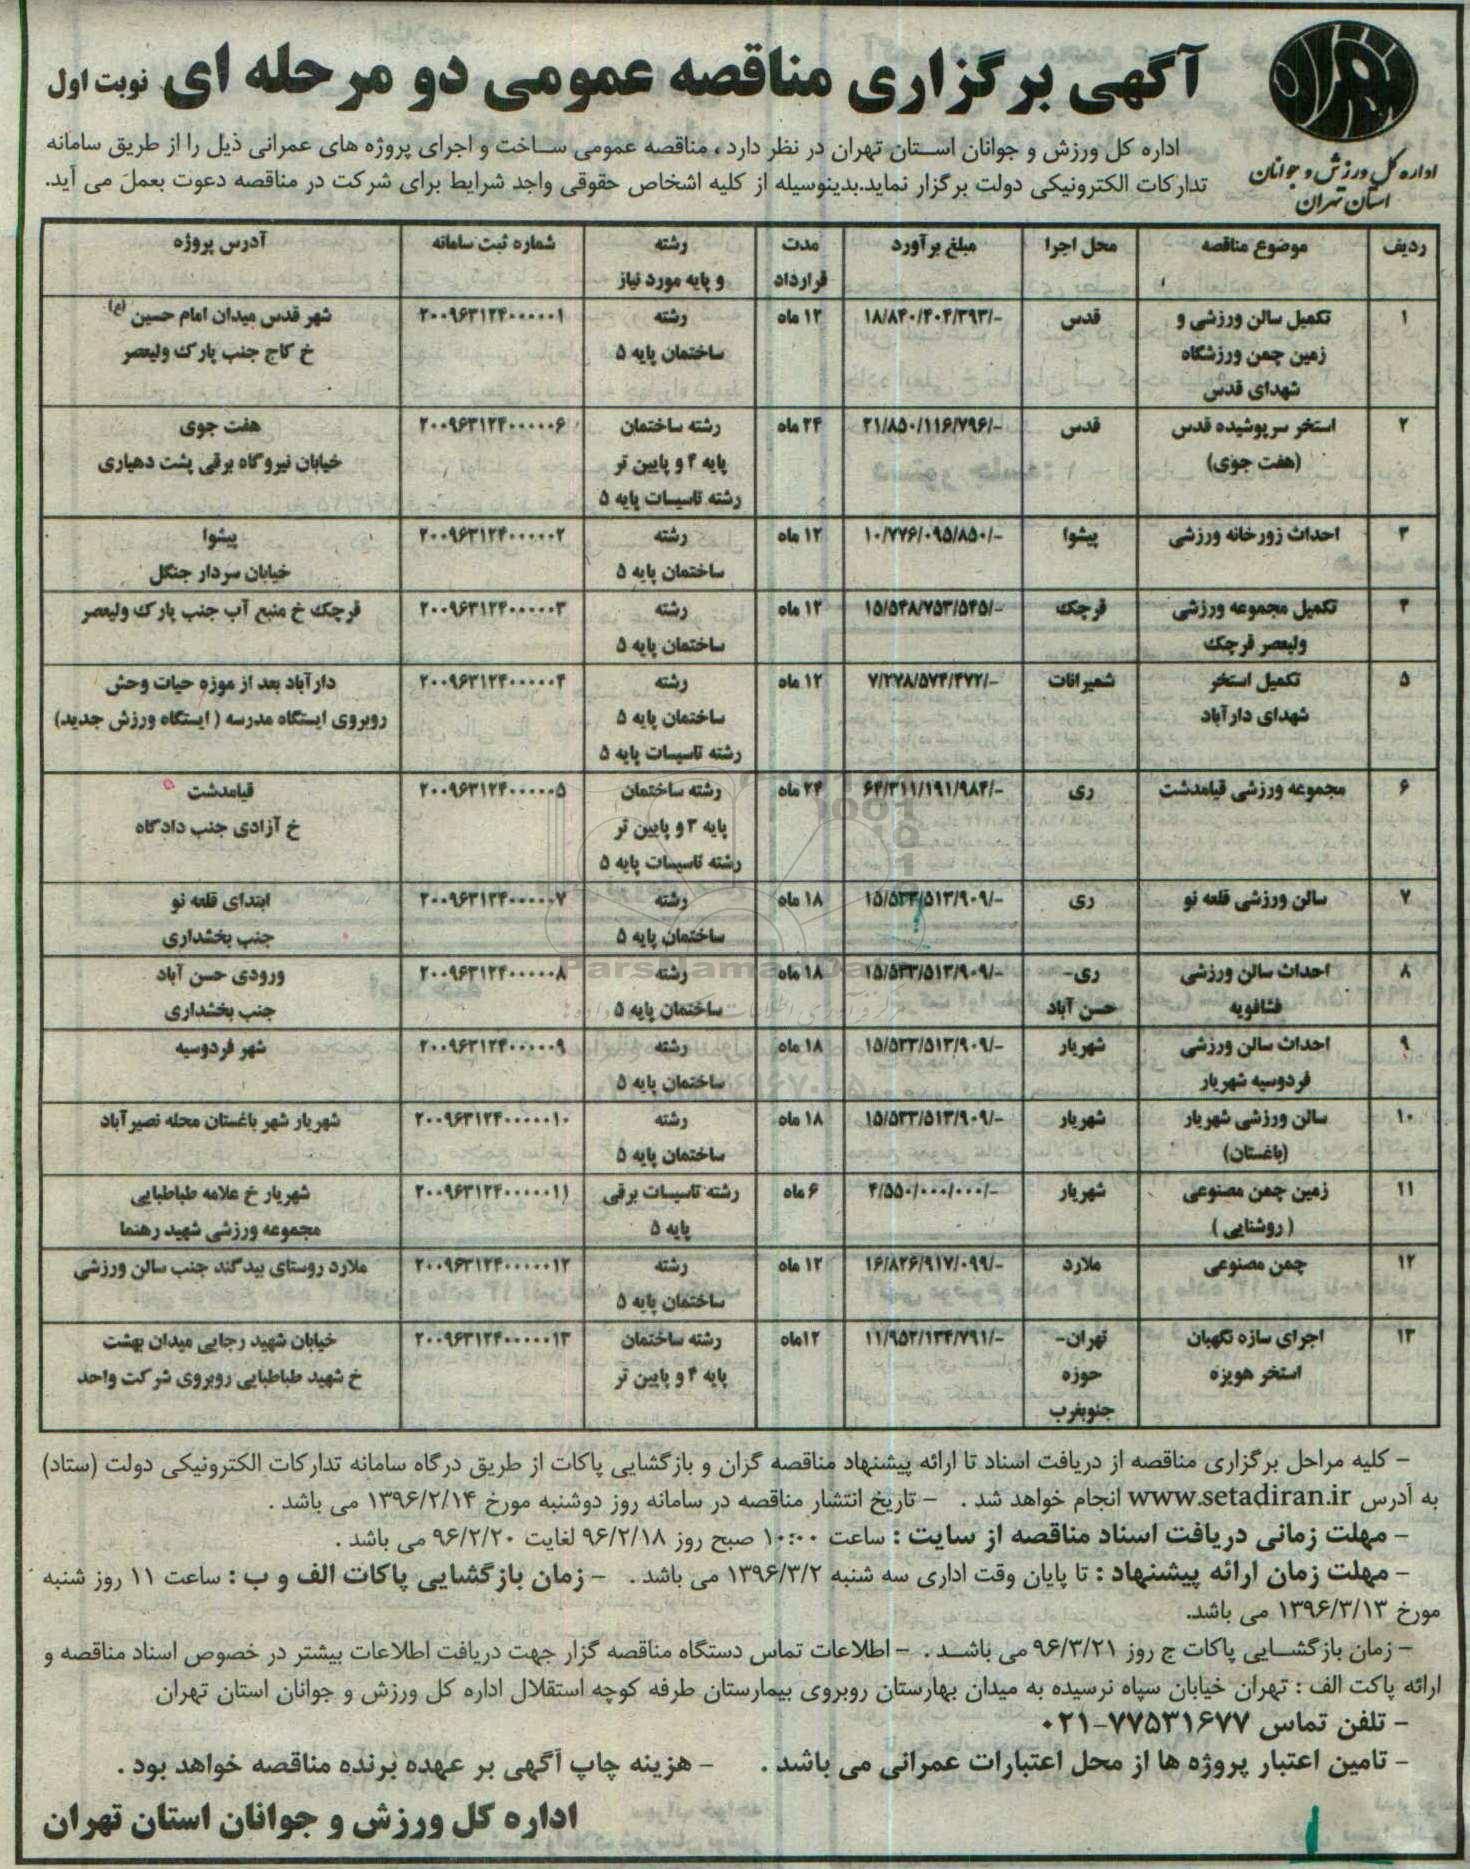 آگهی برگزاری مناقصه عمومی دو مرحله ای نوبت اول
اداره کل ورزش و جوانان
استان تهران
اداره کل ورزش و جوانان استان تهران در نظر دارد ، مناقصه عمومی ساخت و اجرای پروژه های عمرانی ذیل را از طریق سامانه
تدارکات الکترونیکی دولت برگزار نماید.بدینوسیله از کلیه اشخاص حقوقی واجد شرایط برای شرکت در مناقصه دعوت بعمل می آید.
ردیف موضوع مناقصه محل اجرا مبلغ برآورد مدت رشته شماره ثبت سامانه آدرس پروژه
قرارداد و پایه مورد نیاز
۱ تکمیل سالن ورزشی و قدس ۱۸/۸۴۰/۴۰۴/۳۹۳/- ۱۲ ماه رشته ۲۰۰۹۶۳۱۲۴۰۰۰۰۰۱ شهر قدس میدان امام حسین (ع)
زمین چمن ورزشگاه ساختمان پایه ۵ خ کاج جنب پارک ولیعصر
شهدای قدس
۲ استخر سرپوشیده قدس قدس ۲۱/۸۵۰/۱۱۶/۷۹۶/- ۲۴ ماه رشته ساختمان ۲۰۰۹۶۳۱۲۴۰۰۰۰۰۶ هفت جوی
(هفت جوی) پایه ۴ و پایین تر خیابان نیروگاه برقی پشت دهیاری
رشته تاسیسات پایه ۵
۳ احداث زورخانه ورزشی پیشوا ۱۰/۷۷۶/۰۹۵/۸۵۰/- ۱۲ ماه رشته ۲۰۰۹۶۳۱۲۴۰۰۰۰۰۲ پیشوا
ساختمان پایه ۵ خیابان سردار جنگل
۴ تکمیل مجموعه ورزشی قرچک ۱۵/۵۴۸/۷۵۳/۵۴۵/- ۱۲ ماه رشته ۲۰۰۹۶۳۱۲۴۰۰۰۰۰۳ قرچک خ منبع آب جنب پارک ولیعصر
ولیعصر قرچک ساختمان پایه ۵
۵ تکمیل استخر شمیرانات ۷/۲۷۸/۵۷۴/۴۷۲/- ۱۲ ماه رشته ۲۰۰۹۶۳۱۲۴۰۰۰۰۰۴ دارآباد بعد از موزه حیات وحش
شهدای دارآباد ساختمان پایه ۵ روبروی ایستگاه مدرسه ( ایستگاه ورزش جدید)
رشته تاسیسات پایه ۵
۶ مجموعه ورزشی قیامدشت ری ۶۴/۳۱۱/۱۹۱/۹۸۴/- ۲۴ ماه رشته ساختمان ۲۰۰۹۶۳۱۲۴۰۰۰۰۰۵ قیامدشت
پایه ۳ و پایین تر خ آزادی جنب دادگاه
رشته تاسیسات پایه ۵
۷ سالن ورزشی قلعه نو ری ۱۵/۵۳۳/۵۱۳/۹۰۹/- ۱۸ ماه رشته ۲۰۰۹۶۳۱۲۴۰۰۰۰۰۷ ابتدای قلعه نو
ساختمان پایه ۵ جنب بخشداری
۸ احداث سالن ورزشی ری- ۱۵/۵۳۳/۵۱۳/۹۰۹/- ۱۸ ماه رشته ۲۰۰۹۶۳۱۲۴۰۰۰۰۰۸ ورودی حسن آباد
فشافویه حسن آباد ساختمان پایه ۵ جنب بخشداری
۹ احداث سالن ورزشی شهریار ۱۵/۵۳۳/۵۱۳/۹۰۹/- ۱۸ ماه رشته ۲۰۰۹۶۳۱۲۴۰۰۰۰۰۹ شهر فردوسیه
فردوسیه شهریار ساختمان پایه ۵
۱۰ سالن ورزشی شهریار شهریار ۱۵/۵۳۳/۵۱۳/۹۰۹/- ۱۸ ماه رشته ۲۰۰۹۶۳۱۲۴۰۰۰۰۱۰ شهریار شهر باغستان محله نصیرآباد
(باغستان) ساختمان پایه ۵
۱۱ زمین چمن مصنوعی شهریار ۴/۵۵۰/۰۰۰/۰۰۰/- ۶ ماه رشته تاسیسات برقی ۲۰۰۹۶۳۱۲۴۰۰۰۰۱۱ شهریار خ علامه طباطبایی
( روشنایی ) پایه ۵ مجموعه ورزشی شهید رهنما
۱۲ چمن مصنوعی ملارد ۱۶/۸۲۶/۹۱۷/۰۹۹/- ۱۲ ماه رشته ۲۰۰۹۶۳۱۲۴۰۰۰۰۱۲ ملارد روستای بیدگند جنب سالن ورزشی
ساختمان پایه ۵
۱۳ اجرای سازه نگهبان تهران- ۱۱/۹۵۲/۱۳۴/۷۹۱/- ۱۲ماه رشته ساختمان ۲۰۰۹۶۳۱۲۴۰۰۰۰۱۳ خیابان شهید رجایی میدان بهشت
استخر هویزه حوزه پایه ۴ و پایین تر خ شهید طباطبایی روبروی شرکت واحد
جنوبغرب
- کلیه مراحل برگزاری مناقصه از دریافت اسناد تا ارائه پیشنهاد مناقصه گران و بازگشایی پاکات از طریق درگاه سامانه تدارکات الکترونیکی دولت (ستاد)
به آدرس www.setadiran.ir انجام خواهد شد . - تاریخ انتشار مناقصه در سامانه روز دوشنبه مورخ ۱۳۹۶/۲/۱۴ می باشد .
- مهلت زمانی دریافت اسناد مناقصه از سایت : ساعت ۱۰:۰۰ صبح روز ۹۶/۲/۱۸ لغایت ۹۶/۲/۲۰ می باشد .
- مهلت زمان ارائه پیشنهاد : تا پایان وقت اداری سه شنبه ۱۳۹۶/۳/۲ می باشد . - زمان بازگشایی پاکات الف و ب : ساعت ۱۱ روز شنبه
مورخ ۱۳۹۶/۳/۱۳ می باشد.
- زمان بازگشایی پاکات ج روز ۹۶/۳/۲۱ می باشد . - اطلاعات تماس دستگاه مناقصه گزار جهت دریافت اطلاعات بیشتر در خصوص اسناد مناقصه و
ارائه پاکت الف : تهران خیابان سپاه نرسیده به میدان بهارستان روبروی بیمارستان طرفه کوچه استقلال اداره کل ورزش و جوانان استان تهران
- تلفن تماس ۷۷۵۳۱۶۷۷-۰۲۱
- تامین اعتبار پروژه ها از محل اعتبارات عمرانی می باشد . - هزینه چاپ آگهی بر عهده برنده مناقصه خواهد بود .
اداره کل ورزش و جوانان استان تهران